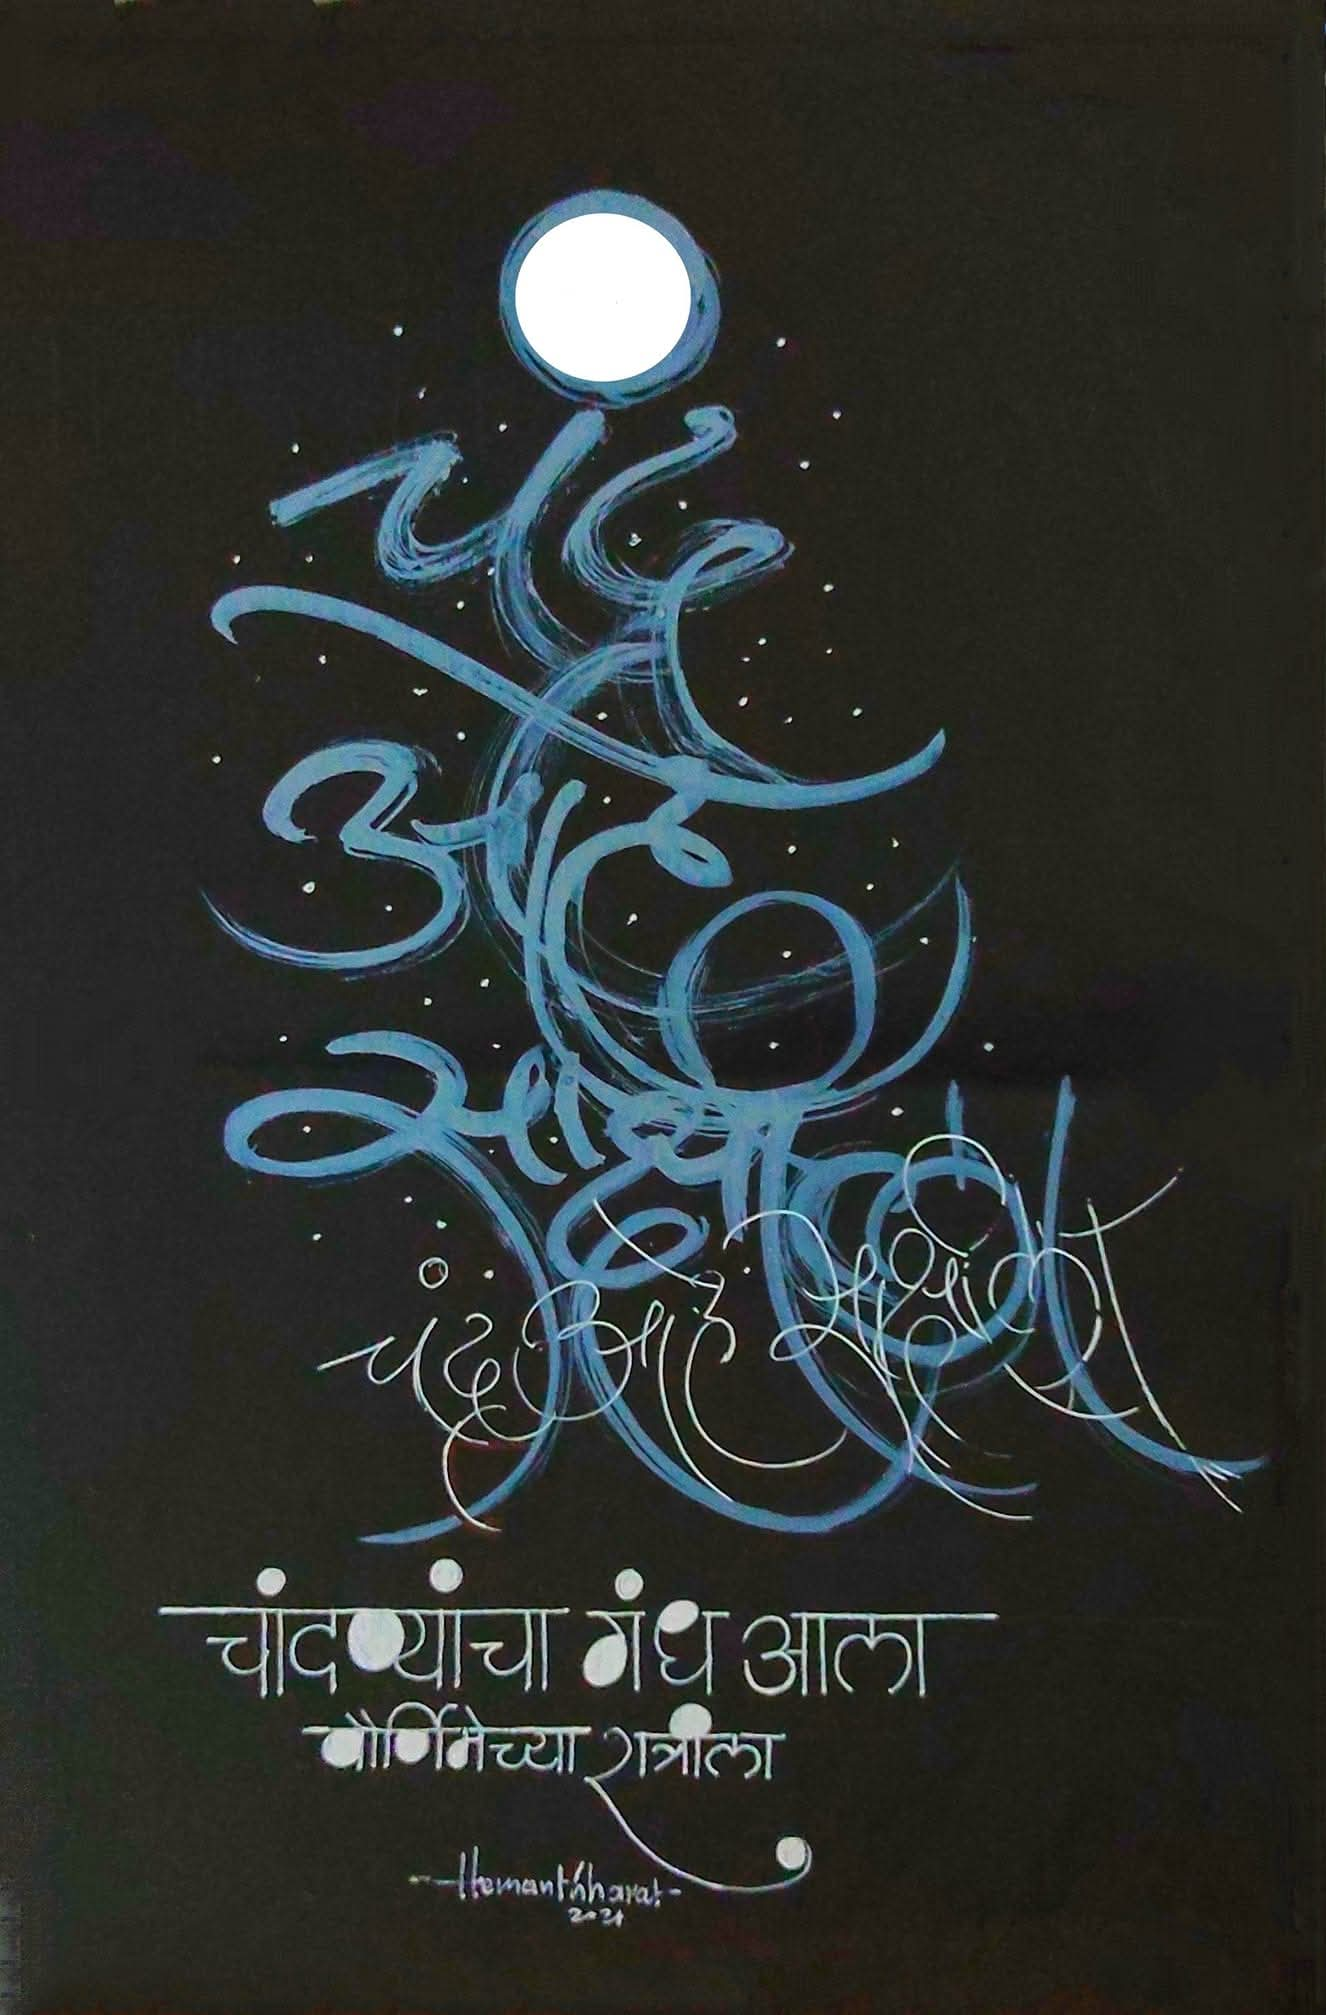 चंद्र
आहे
साक्षीला
चंद्र आहे साक्षीला
चांदण्यांचा गंध आला
पौर्णिमेच्या रात्रीला
Hemant
२०२१